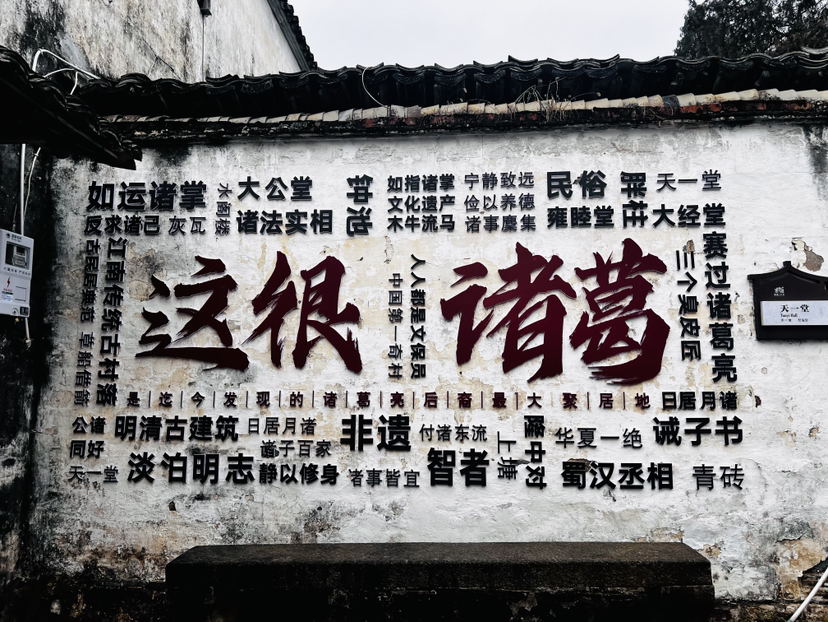 如运诸掌
水阁楼
大公堂
如指诸掌
宁静致远
民俗
天一堂
反求诸己
灰瓦
诸法实相
文化遗产
俭以养德
木牛流马
诸事麇集
雍睦堂
大经堂
古民居建造
江南传统古村落
草船借箭
这很
人人都是文保员
中国第一奇村
诸葛
三个臭皮匠
赛过诸葛亮
天一堂
是迄今发现的诸葛亮后裔最大聚居地
日居月诸
公诸同好
明清古建筑
日居月诸
非遗
付诸东流
上塘
隆中对
华夏一绝
诫子书
诸子百家
天一堂
淡泊明志
静以修身
诸事皆宜
智者
蜀汉丞相
青砖